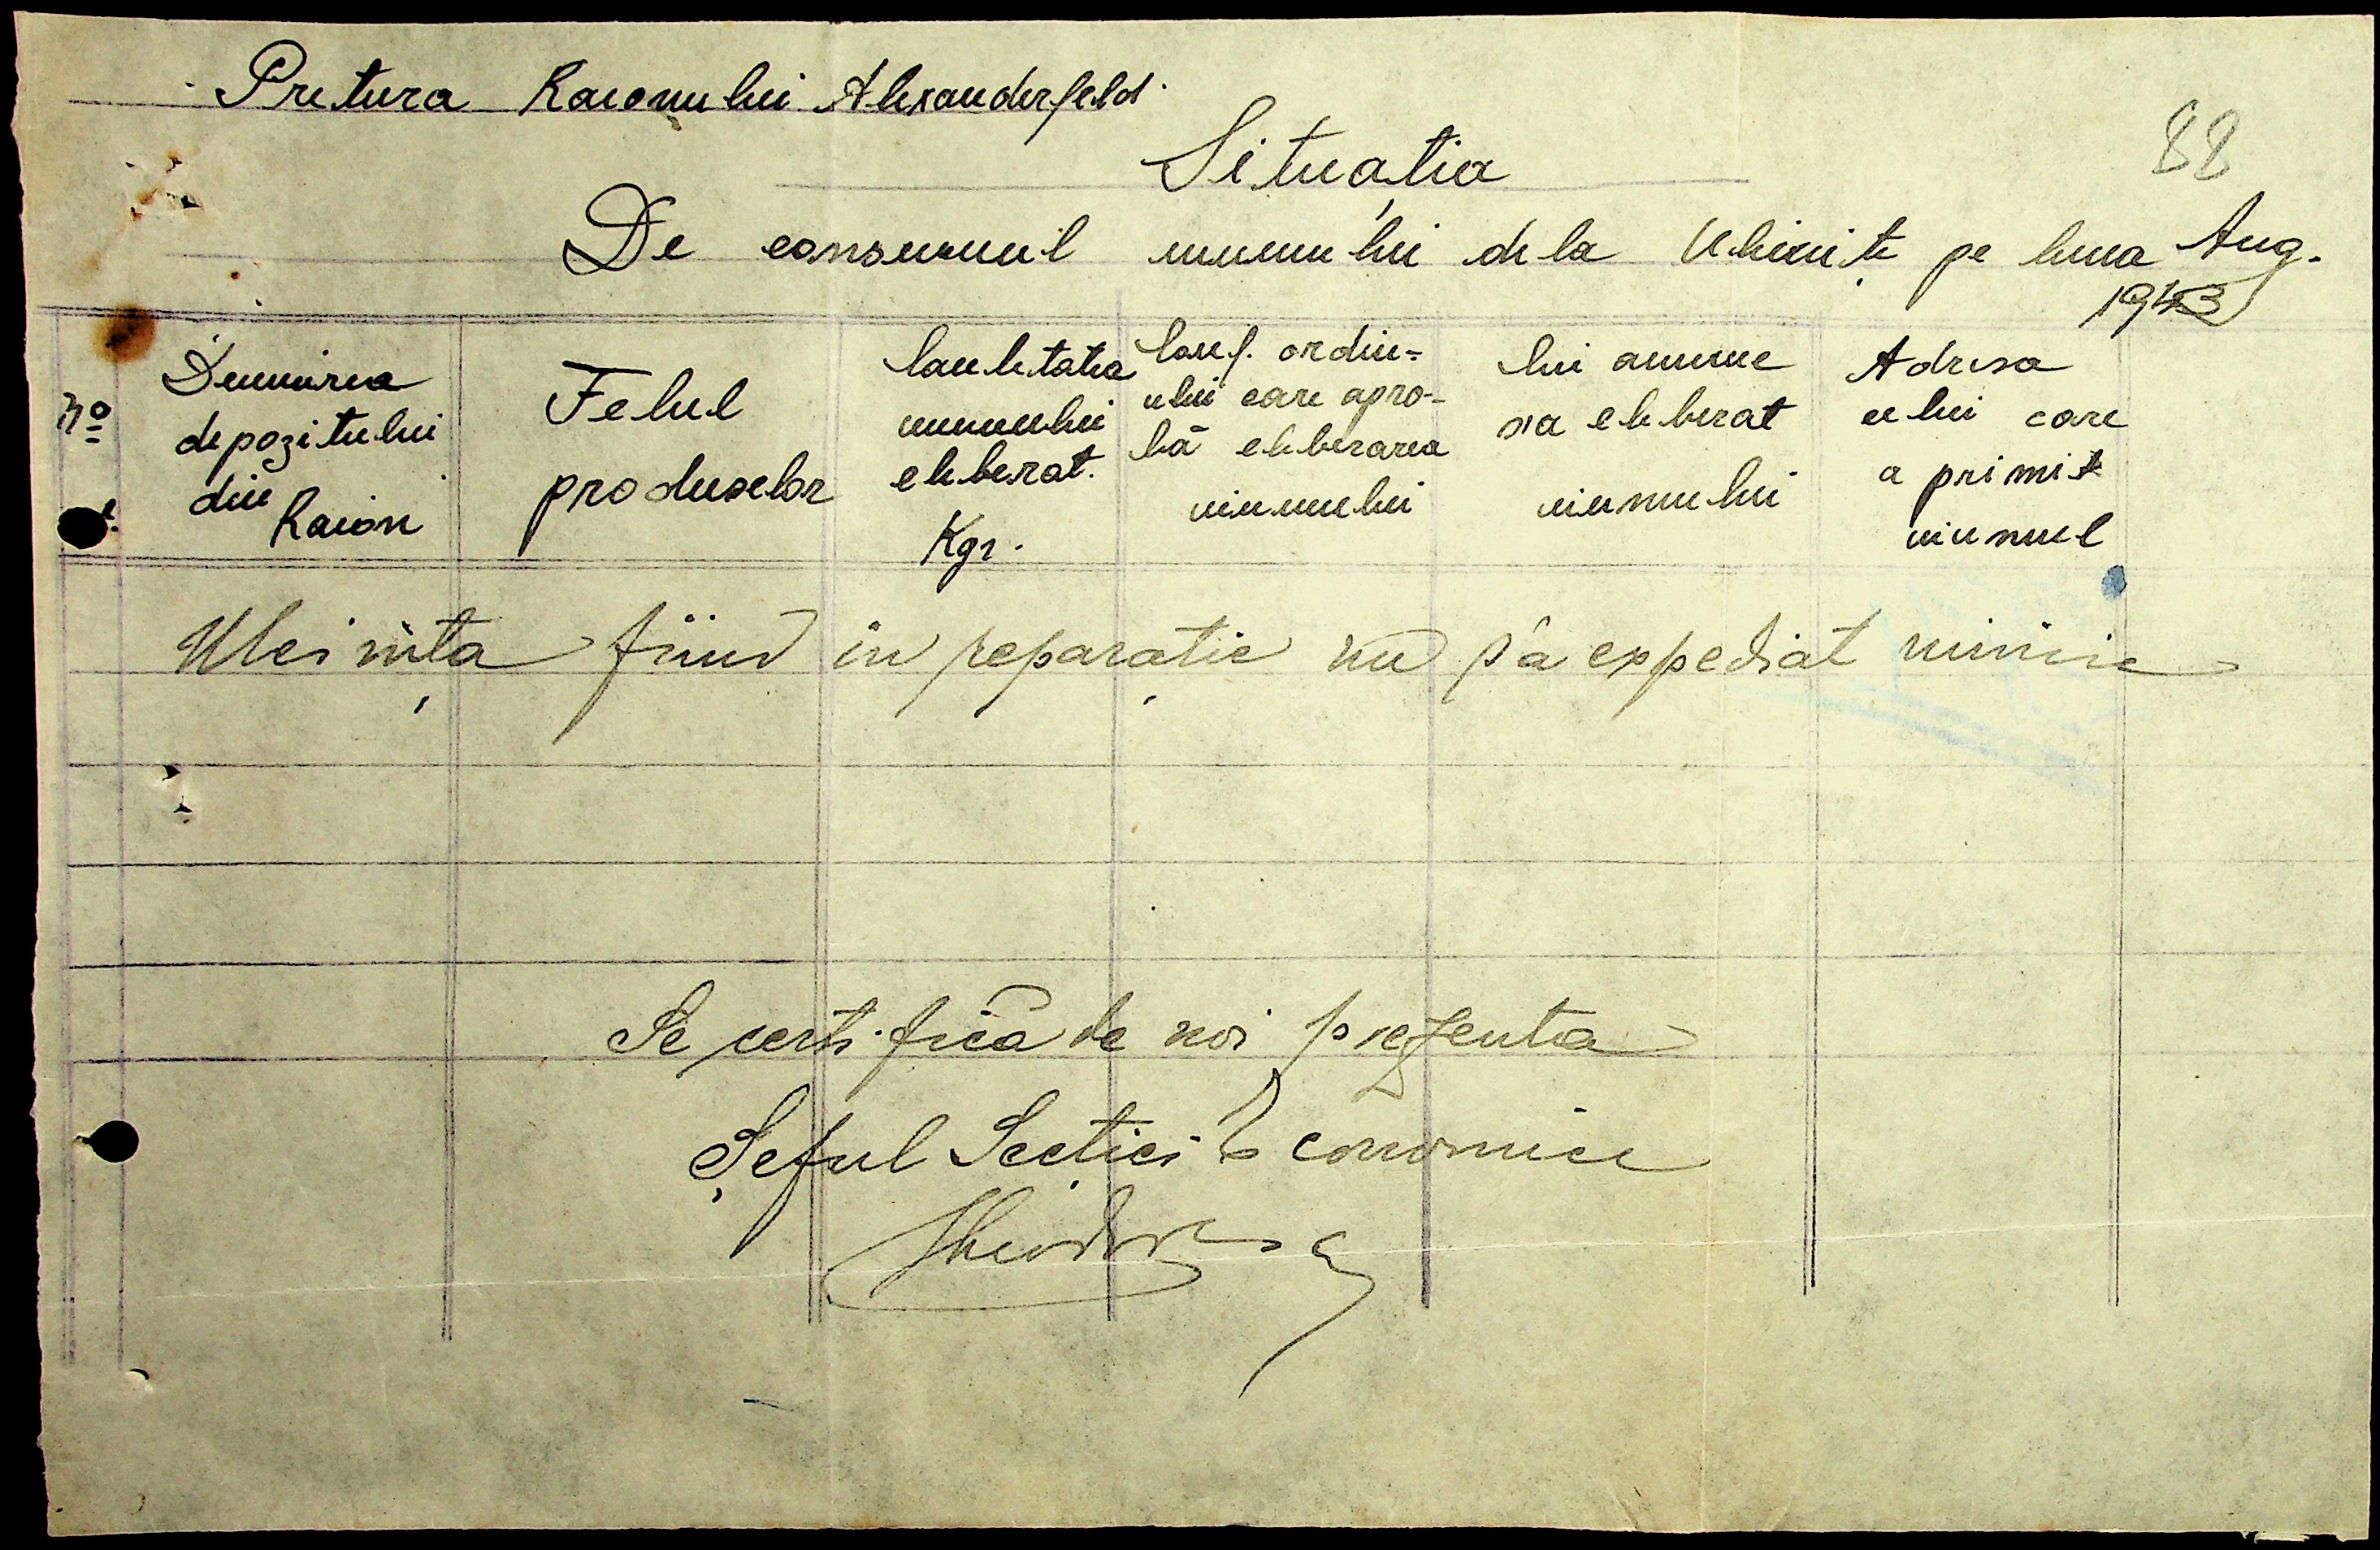 Pretura Raionului Alexanderfeld.
88
Situația
De consumul unumului dela Uleinițe pe luna Aug.
1943
No
Denumirea
depozitului
din
Raion
Felul
produselor
Cantitatea
eliberat.
Kgr.
Conf. ordin-
ului care apro-
bă eliberarea
Cui anume
s'a eliberat
Adresa
celui care
a primit
Uleinița fiind in reparație nu s'a expediat nimic
Se certifică de noi prezenta
Șeful Secției Economice